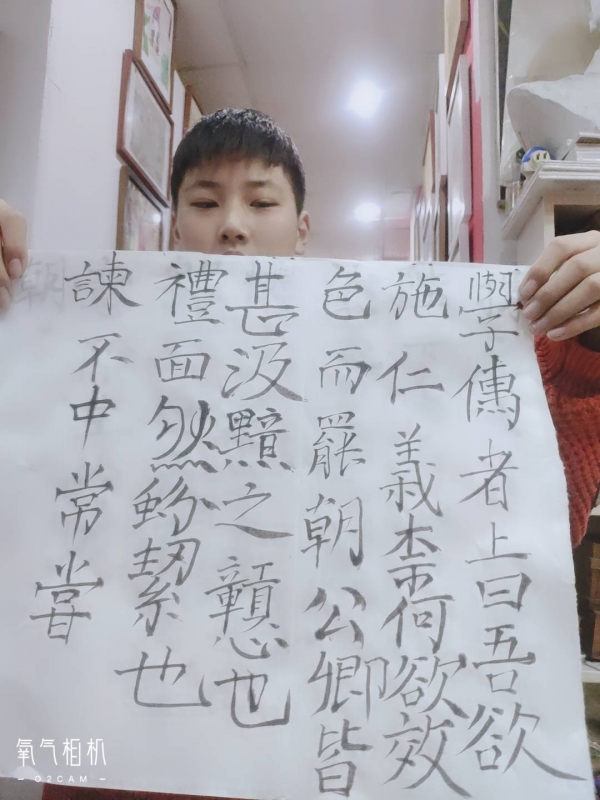 學傳者上曰吾欲
施仁義柰何欲效
色而罷朝公卿皆
甚汲黯之戇也
禮面然蚡絜也
諫不中常嘗
朝
氧气相机
— O2CAM —